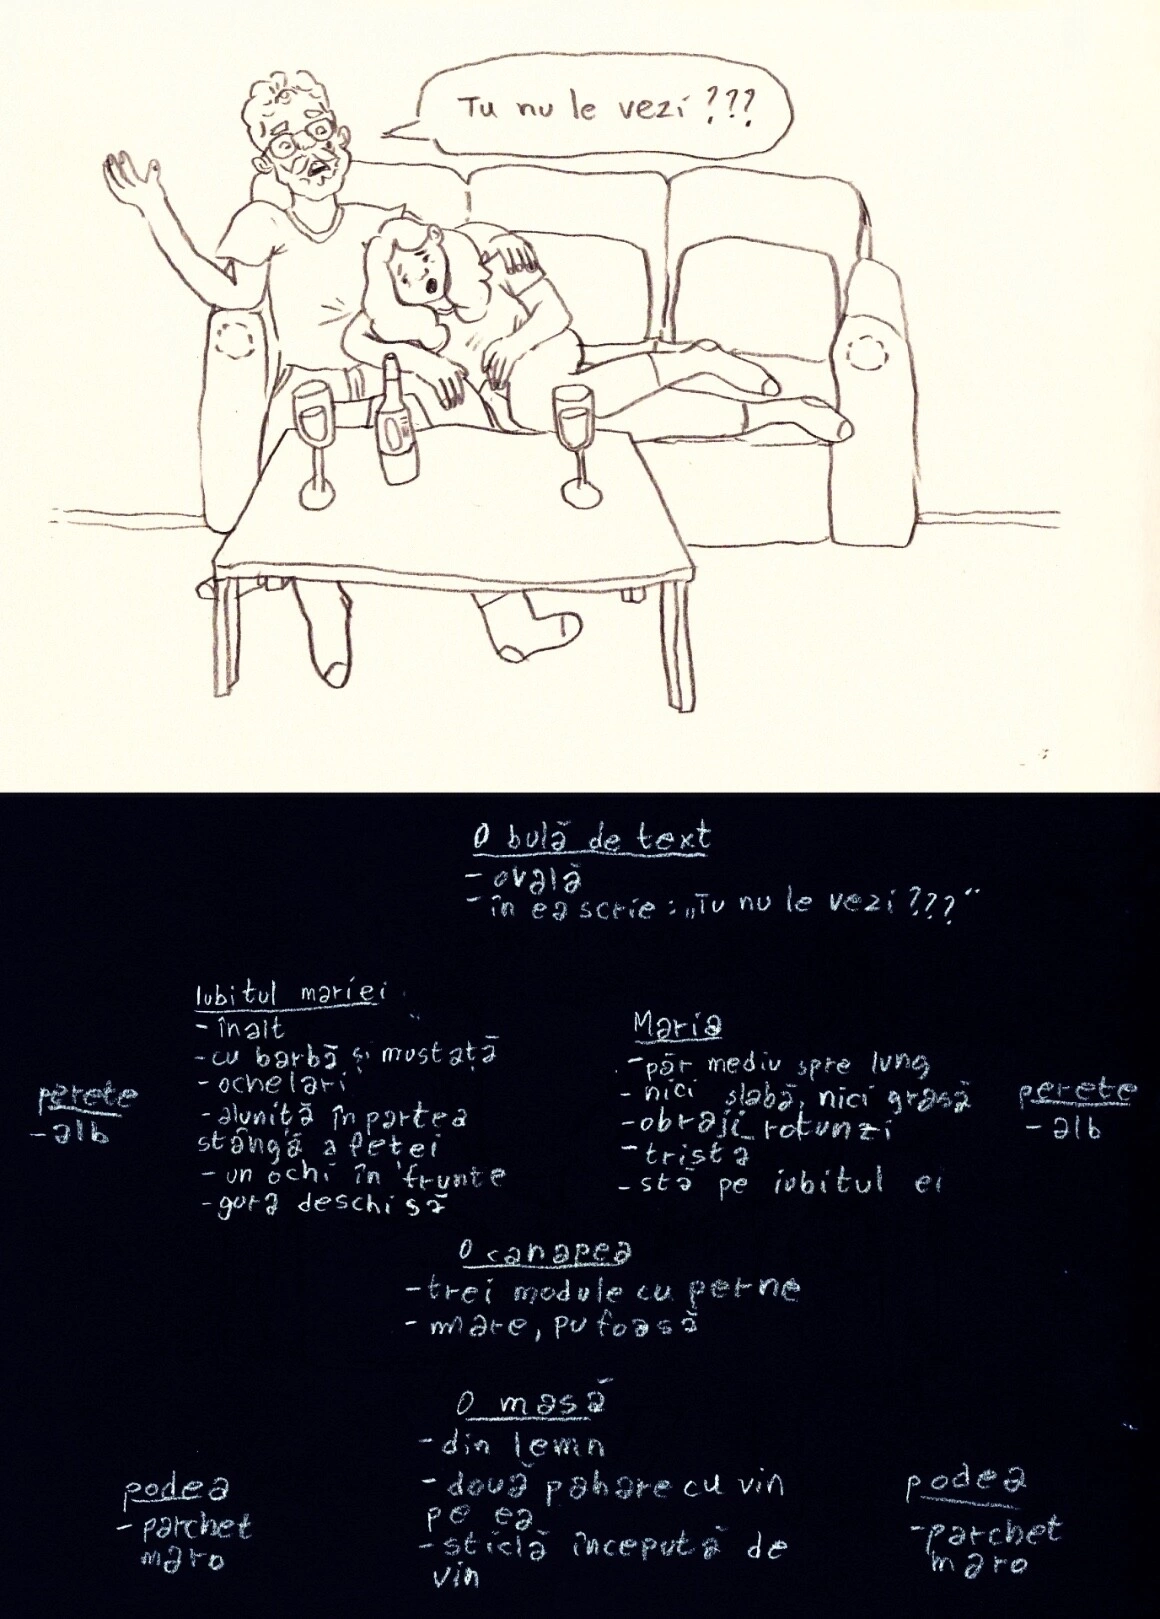 Tu nu le vezi ???
O bulă de text
- ovală
- în ea scrie : „Tu nu le vezi ???“
Iubitul mariei
- înalt
- cu barbă și mustață
- ochelari
- aluniță în partea
stângă a fetei
- un ochi în frunte
- gura deschisă
Maria
- păr mediu spre lung
- nici slabă, nici grasă
- obraji rotunzi
- tristă
- stă pe iubitul ei
perete
- alb
perete
- alb
O canapea
- trei module cu perne
- mare, pufoasă
O masă
- din lemn
- două pahare cu vin
pe ea
- sticlă începută de
vin
podea
- parchet
maro
podea
- parchet
maro